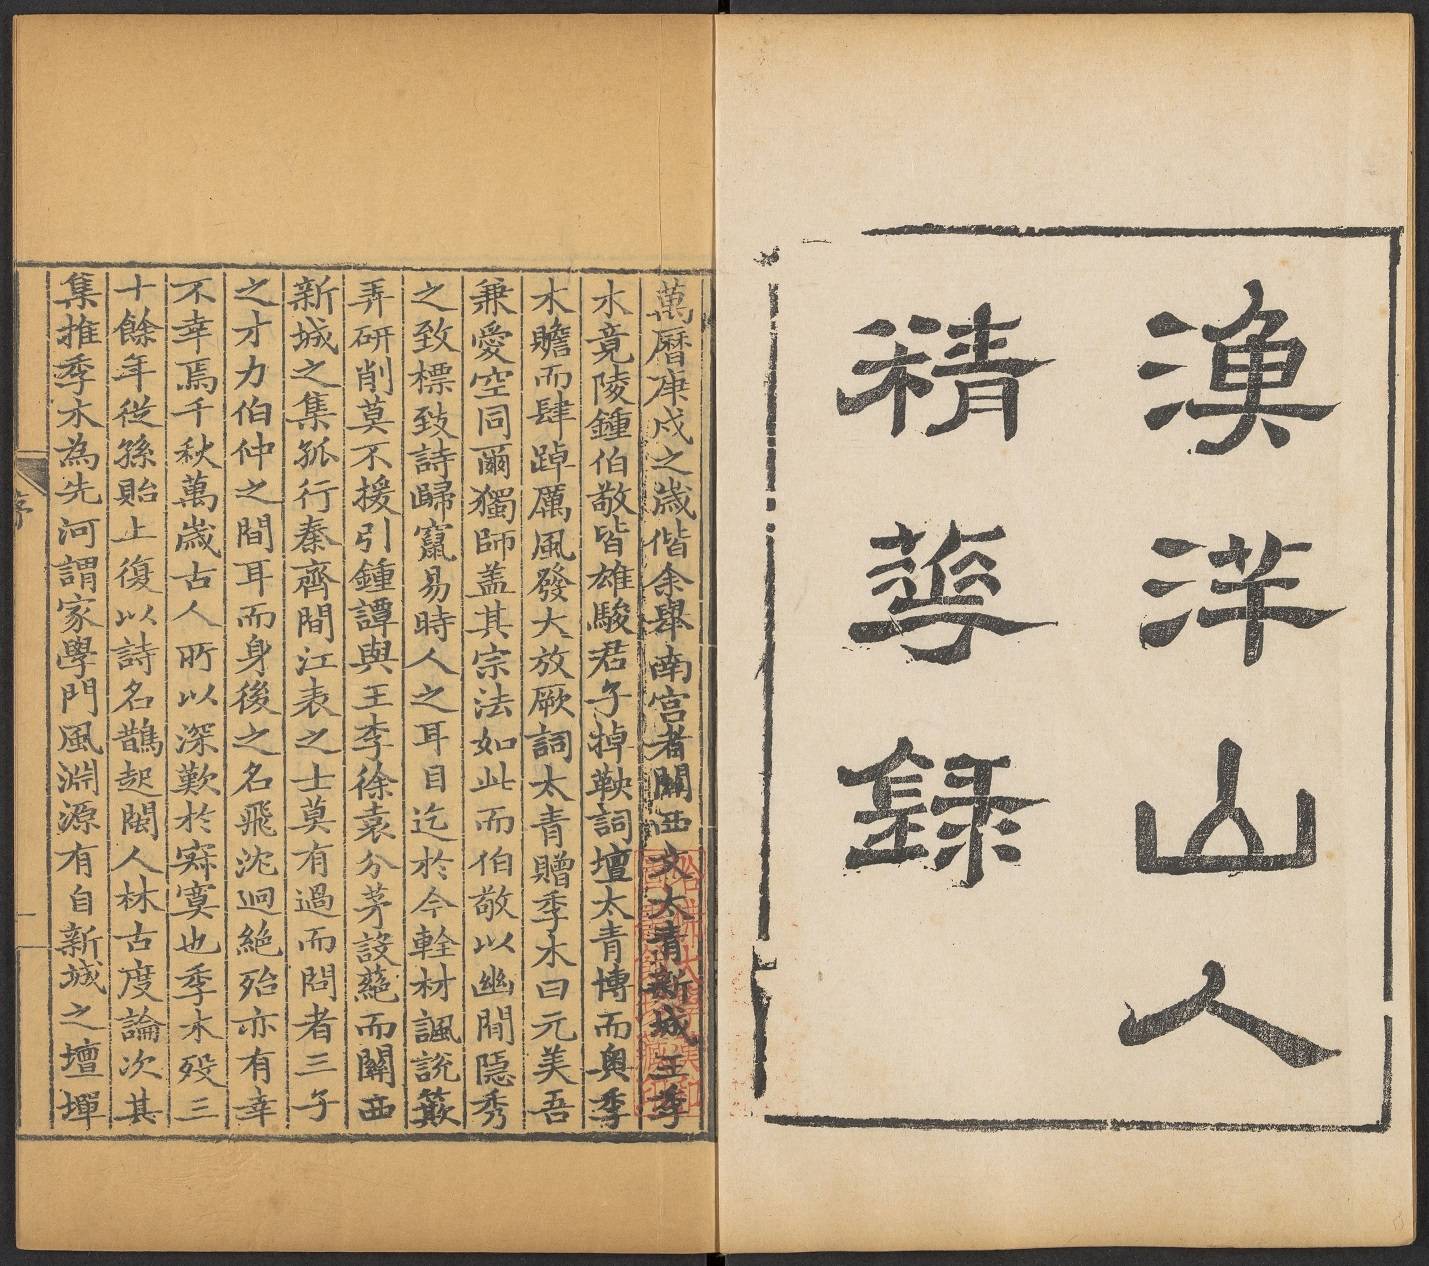 漁洋山人
精華錄
萬曆庚戌之歲偕余舉南宮者關西文太青新城王季
木竟陵鍾伯敬皆雄駿君子掉鞅詞壇太青博而奧季
木贍而肆踔厲風發大放厥詞太青贈季木曰元美吾
兼愛空同爾獨師蓋其宗法如此而伯敬以幽閒隱秀
之致標致詩歸竄易時人之耳目迄於今輇材諷說簸
弄研削莫不援引鍾譚與王李徐袁分茅設蕝而關西
新城之集孤行秦齊間江表之士莫有過而問者三子
之才力伯仲之間耳而身後之名飛沈迥絕殆亦有幸
不幸焉千秋萬歲古人所以深歎於寂寞也季木歿三
十餘年從孫貽上復以詩名鵲起閩人林古度論次其
集推季木為先河謂家學門風淵源有自新城之壇墠
序